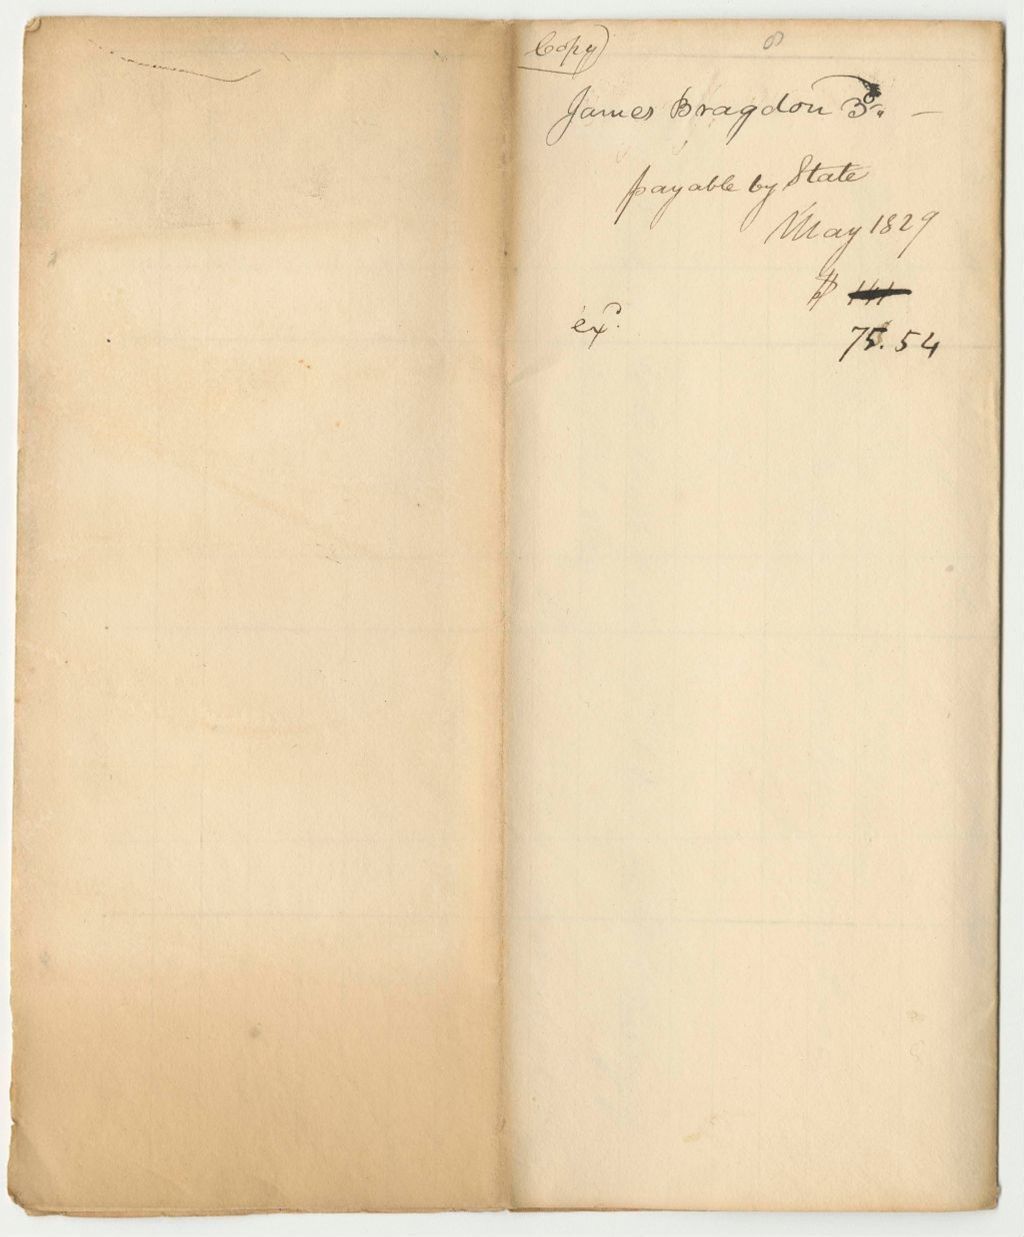 Copy
8
James Bragdon 3d. —
payable by State
May 1829
$ 141
exd.
75.54